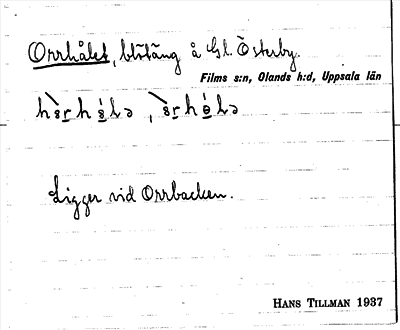 Orrhålet, blötäng å Gl. Österby.
Films s:n, Olands h:d, Uppsala län
Ligger vid Orrbacken.
HANS TILLMAN 1937